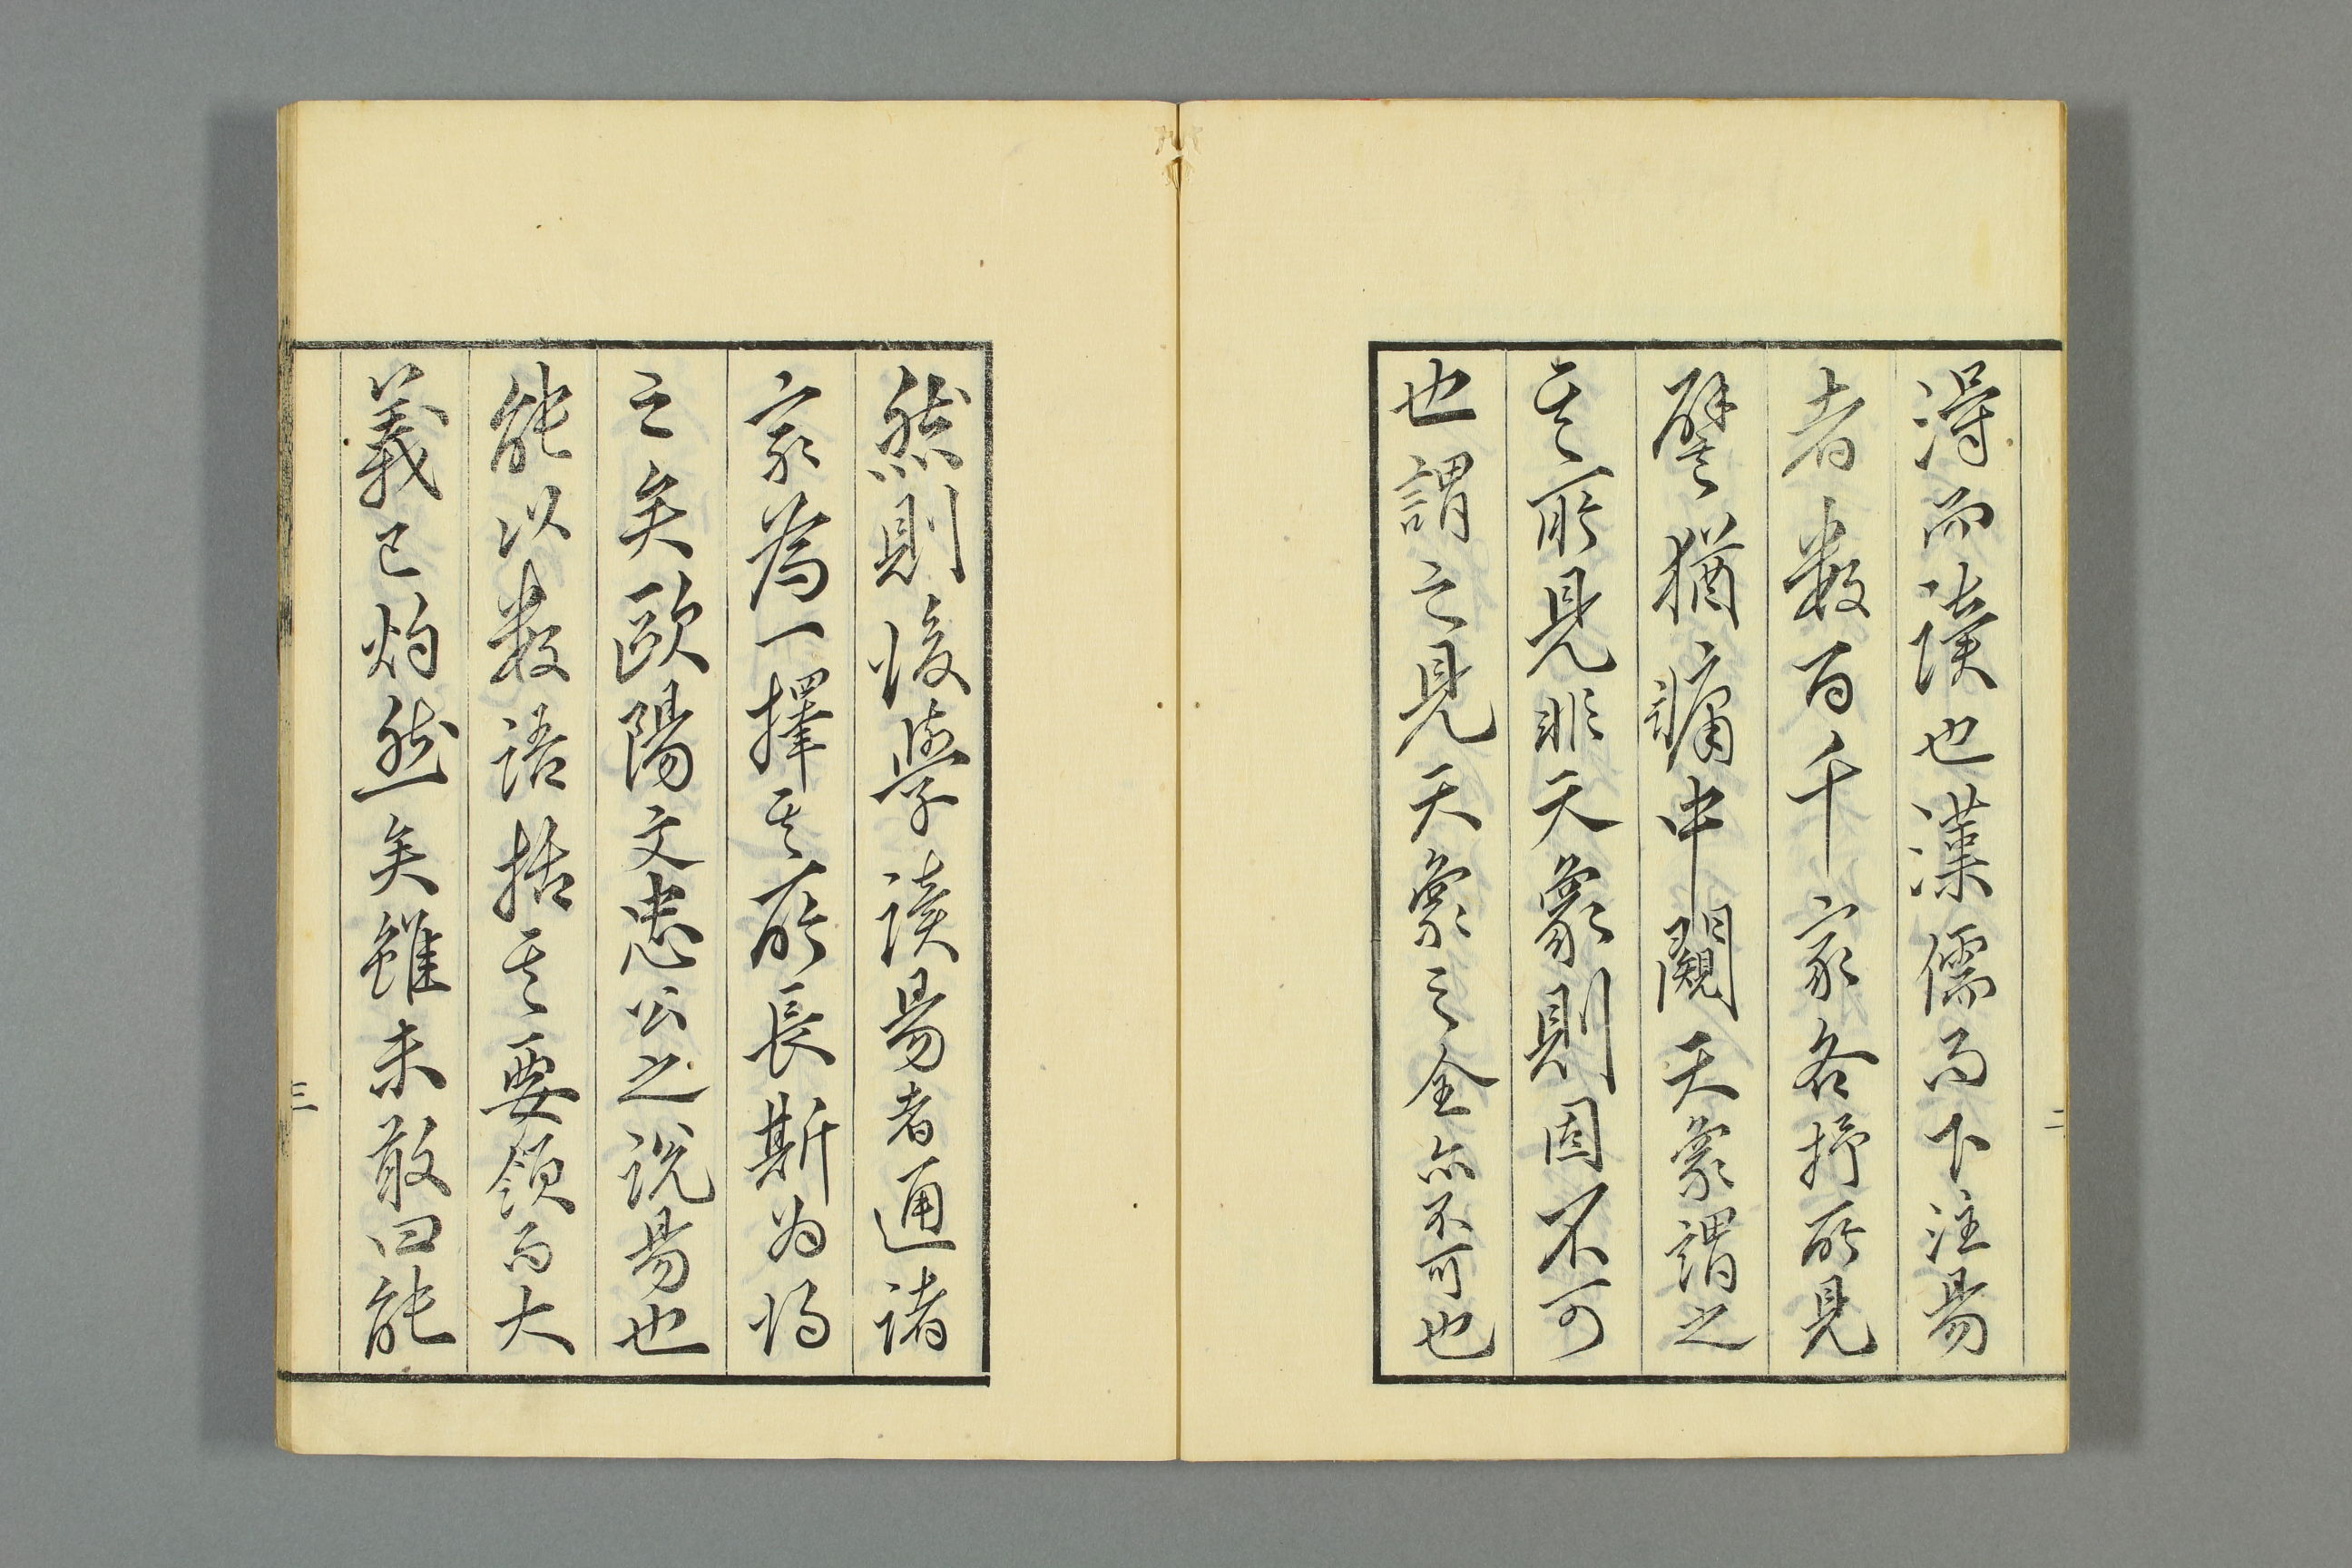 二
得而讀也漢儒而下注易
者數百千家各抒所見
譬猶牖中闚天象謂之
其所見非天象則固不可
也謂之見天象之全亦不可也
然則後學讀易者通諸
家為一擇其所長斯為得
之矣歐陽文忠公之說易也
能以數語括其要領而大
義已灼然矣雖未敢曰能
三